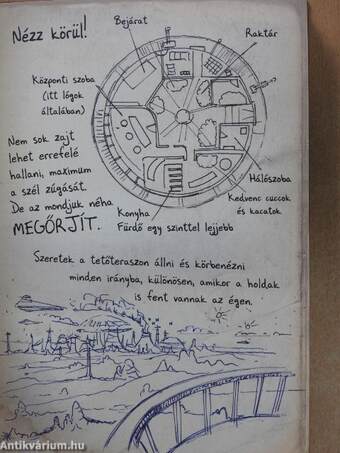 Nézz körül!
Bejárat
Raktár
Központi szoba
(itt lógok
általában)
Nem sok zajt
lehet errefelé
hallani, maximum
a szél zúgását.
De az mondjuk néha
MEGŐRJÍT.
Hálószoba
Kedvenc cuccok
és kacatok
Konyha
Fürdő egy szinttel lejjebb
Szeretek a tetőteraszon állni és körbenézni
minden irányba, különösen, amikor a holdak
is fent vannak az égen.
Antikvárium.hu